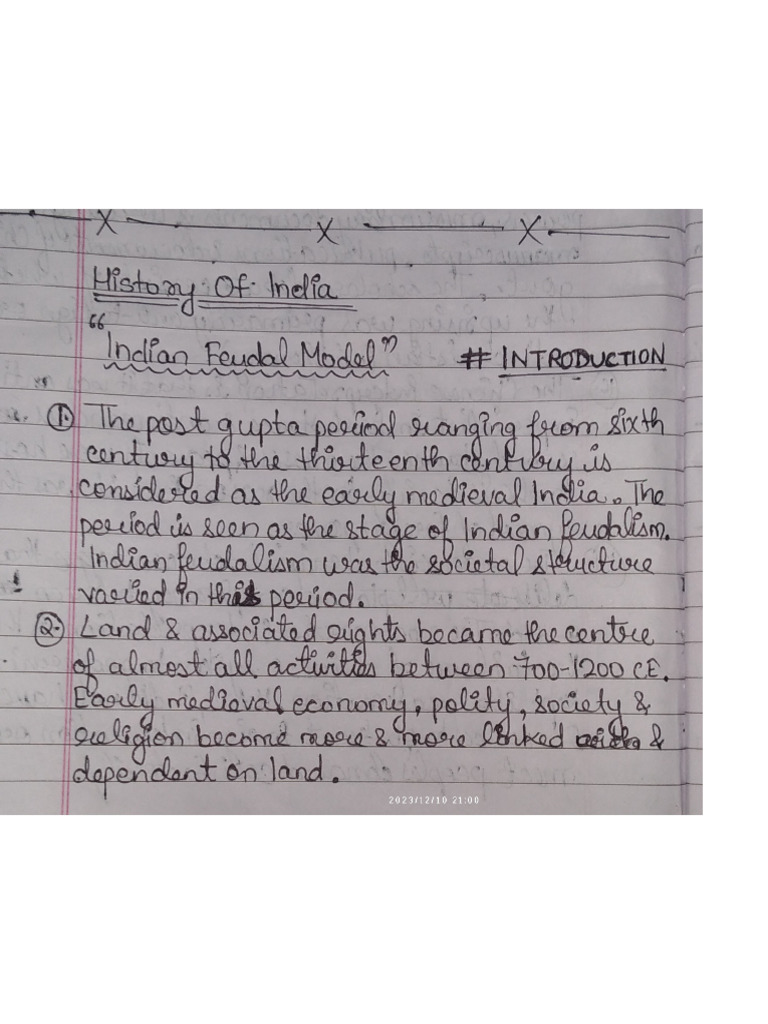 X X X
History Of India
"Indian Feudal Model" # INTRODUCTION
1. The post gupta period ranging from sixth
century to the thirteenth century is
considered as the early medieval India. The
period is seen as the stage of Indian feudalism.
Indian feudalism was the societal structure
varied in this period.
2. Land & associated rights became the centre
of almost all activities between 700-1200 CE.
Early medieval economy, polity, society &
religion become more & more linked &
dependent on land.
2023/12/10 21:00